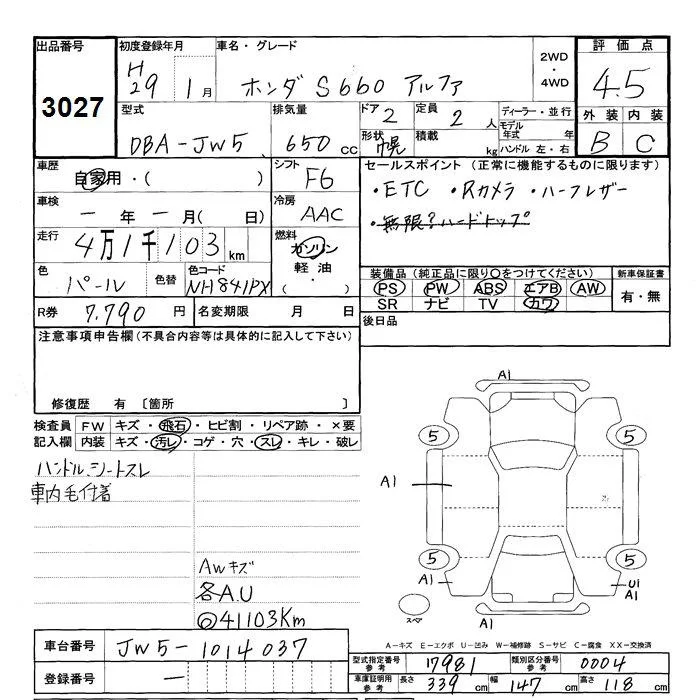 出品番号 初度登録年月 車名・グレード 評価点
3027 H29 1月 ホンダ S660 アルファ 2WD ・ 4WD 4.5
型式 排気量 ドア 2 定員 2人 ディーラー・並行 外装 内装
DBA-JW5 650cc 形状 幌 積載 kg モデル年式 年 ハンドル 左・右 B C
車歴 自家用・( ) シフト F6 セールスポイント(正常に機能するものに限ります)
車検 ー年ー月(日) 冷房 AAC ・ETC ・Rカメラ ・ハーフレザー
・無限?ハードトップ
走行 4万1千103km 燃料 ガソリン 軽油 ・( )
色 パール 色替 色コード NH841PX 装備品(純正品に限り○をつけてください) 新車保証書
PS PW ABS エアB AW 有・無
SR ナビ TV カワ
R券 7,790円 名変期限 月 日 後日品
注意事項申告欄(不具合内容等は具体的に記入して下さい)
修復歴 有〔箇所 〕
検査員 FW キズ・飛石・ヒビ割・リペア跡・×要
記入欄 内装 キズ・汚レ・コゲ・穴・スレ・キレ・破レ
ハンドル、シートスレ
車内毛付着
AWキズ
各A.U
◎41103Km
A1
5 5
A1 A1
5 5
A1 U1
A1
A1
スペア
A-キズ E-エクボ U-凹み W-補修跡 S-サビ C-腐食 XX-交換済
車台番号 JW5-1014037
型式指定番号 参考 17981 類別区分番号 参考 0004
登録番号 ー
車庫証明用 参考 長さ 339cm 幅 147cm 高さ 118cm